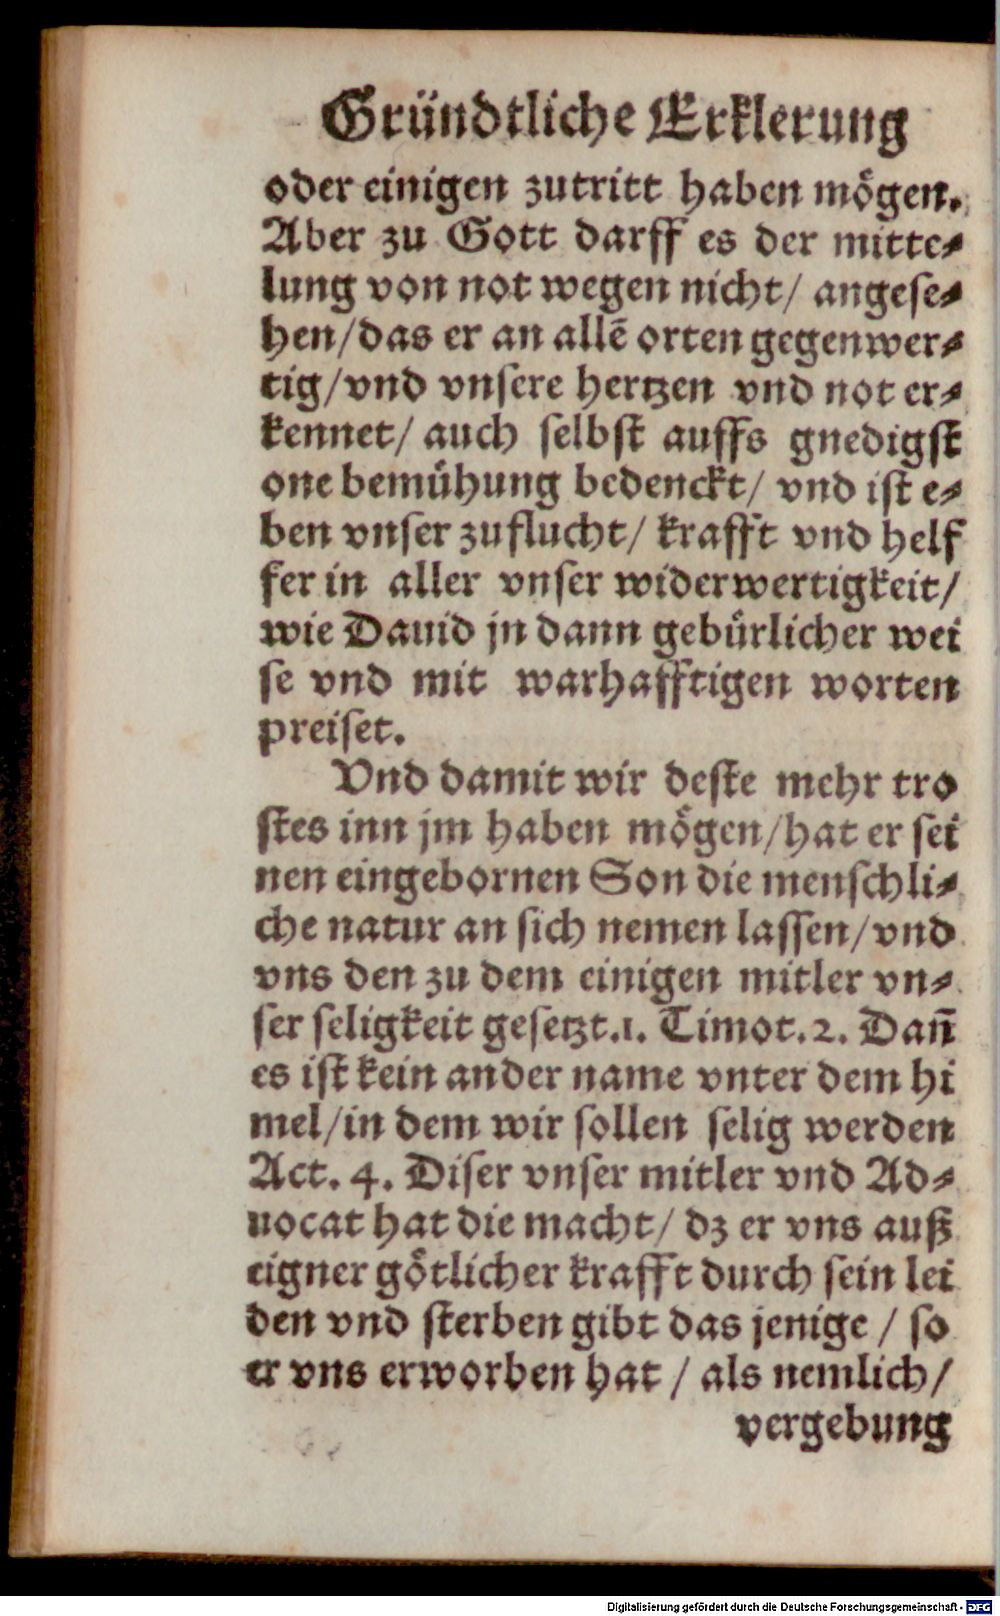 Gründtliche Erklerung
oder einigen zutritt haben mögen.
Aber zu Gott darff es der mitte⸗
lung von not wegen nicht/ angese⸗
hen/das er an allē orten gegenwer⸗
tig/vnd vnsere hertzen vnd not er⸗
kennet/ auch selbst auffs gnedigst
one bemühung bedenckt/ vnd ist e⸗
ben vnser zuflucht/ krafft vnd helf
fer in aller vnser widerwertigkeit/
wie Dauid jn dann gebürlicher wei
se vnd mit warhafftigen worten
preiset.
Vnd damit wir deste mehr tro
stes inn jm haben mögen/hat er sei
nen eingebornen Son die menschli⸗
che natur an sich nemen lassen/vnd
vns den zu dem einigen mitler vn⸗
ser seligkeit gesetzt.1. Timot.2. Dañ
es ist kein ander name vnter dem hi
mel/in dem wir sollen selig werden
Act. 4. Diser vnser mitler vnd Ad⸗
uocat hat die macht/ dz er vns auß
eigner götlicher krafft durch sein lei
den vnd sterben gibt das jenige / so
er vns erworben hat / als nemlich/
vergebung
Digitalisierung gefördert durch die Deutsche Forschungsgemeinschaft - DFG